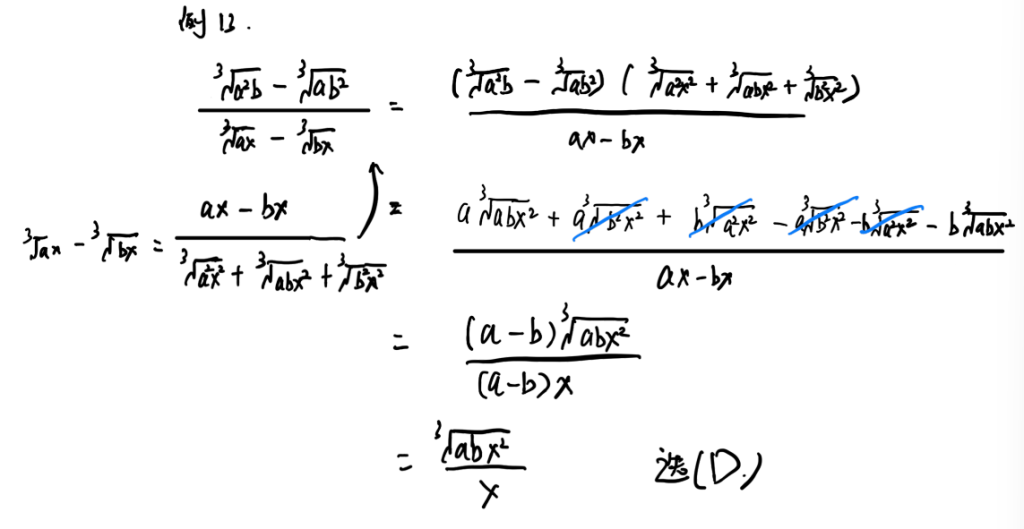 例13.
\frac{\sqrt[3]{a^2b} - \sqrt[3]{ab^2}}{\sqrt[3]{ax} - \sqrt[3]{bx}} = \frac{(\sqrt[3]{a^2b} - \sqrt[3]{ab^2})(\sqrt[3]{a^2x^2} + \sqrt[3]{abx^2} + \sqrt[3]{b^2x^2})}{ax - bx}
\sqrt[3]{ax} - \sqrt[3]{bx} = \frac{ax - bx}{\sqrt[3]{a^2x^2} + \sqrt[3]{abx^2} + \sqrt[3]{b^2x^2}}
= \frac{a\sqrt[3]{abx^2} + a\sqrt[3]{b^2x^2} + b\sqrt[3]{a^2x^2} - a\sqrt[3]{b^2x^2} - b\sqrt[3]{a^2x^2} - b\sqrt[3]{abx^2}}{ax - bx}
= \frac{(a-b)\sqrt[3]{abx^2}}{(a-b)x}
= \frac{\sqrt[3]{abx^2}}{x} 选(D.)